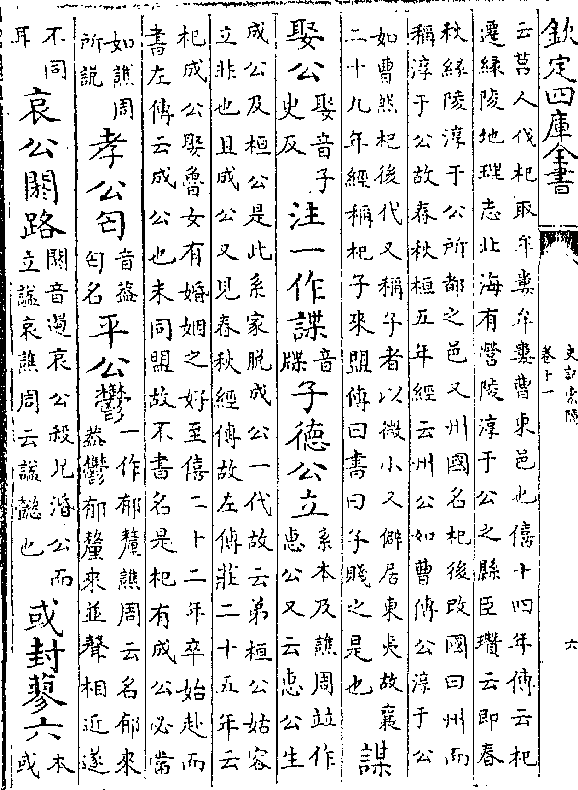 欽定四庫全書
史記索隱
卷十一
六
云莒人伐杞取牟婁牟婁曹東邑也僖十四年傳云杞
遷緣陵地理志北海有營陵淳于公之縣臣瓚云即春
秋緣陵淳于公所都之邑又州國名杞後改國曰州而
稱淳于公故春秋桓五年經云州公如曹傳公淳于公
如曹然杞後代又稱子者以微小又僻居東夷故襄
二十九年經稱杞子來盟傳曰書曰子賤之是也
謀
娶公
娶音子
史反
注一作諜
音
牒
子德公立
系本及譙周並作
惠公又云惠公生
成公及桓公是此系家脫成公一代故云弟桓公姑容
立非也且成公又見春秋經傳故左傳莊二十五年云
杞成公娶魯女有婚姻之好至僖二十二年卒始赴而
書左傳云成公也未同盟故不書名是杞有成公必當
如譙周
所說
孝公匄
音蓋
匄名
平公鬱
一作郁釐譙周云名郁來
蓋鬱郁釐來並聲相近遂
不同
耳
哀公閼路
閼音遏哀公殺兄湣公而
立諡哀譙周云諡懿也
或封蓼六
本
或